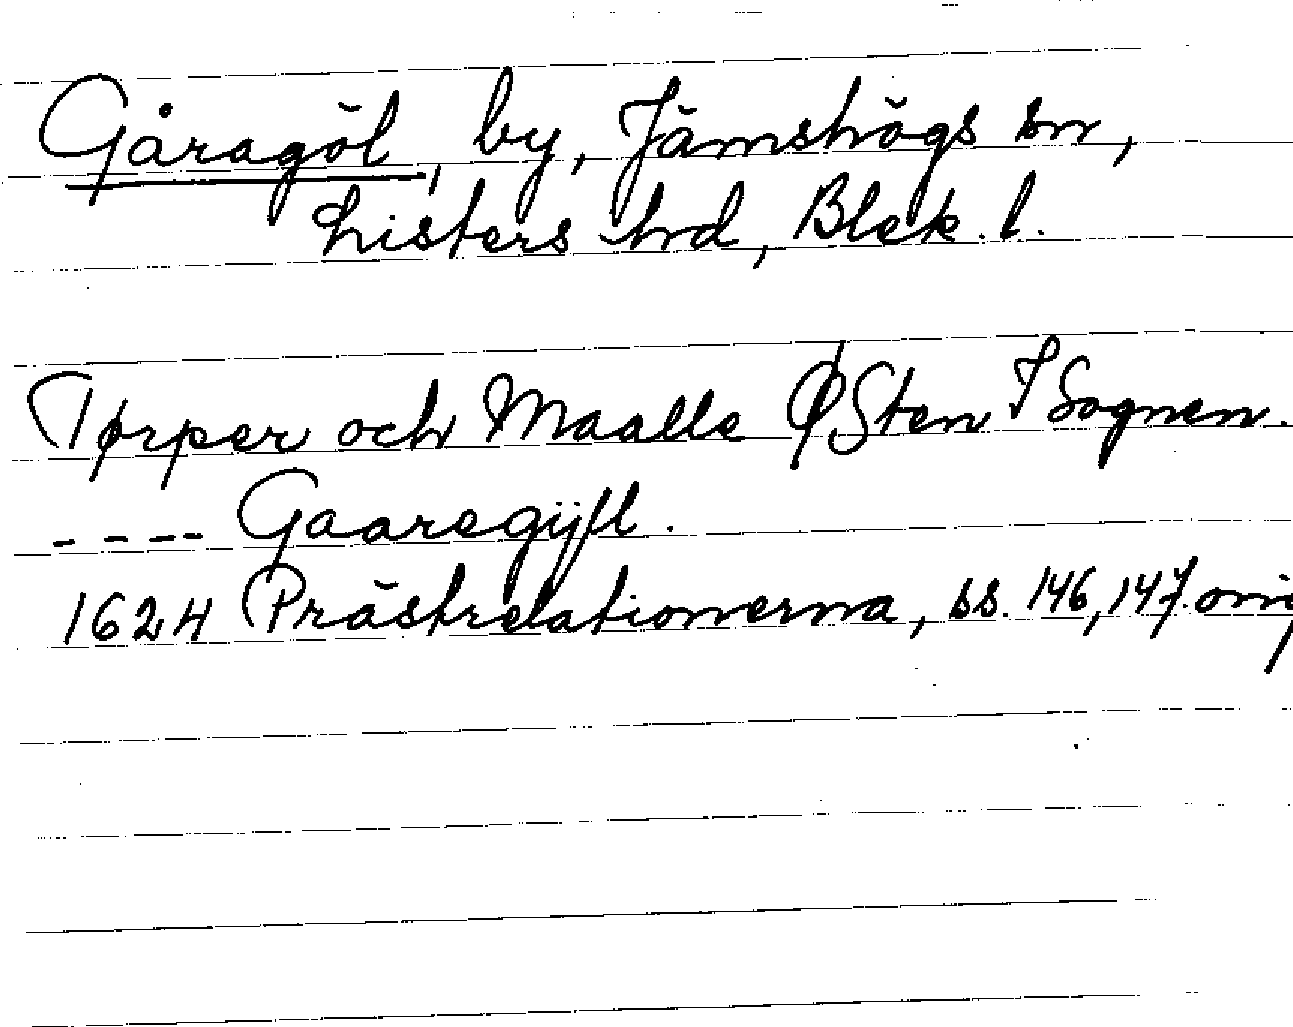 Gåragöl, by, Jämshögs sn,
Listers hrd, Blek. l.
Tørper och Maalle ØSten I Sognen.
- - -- Gaaregijfl.
1624 Prästrelationerna, ss. 146, 147. orig